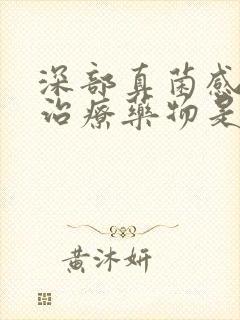 深部真菌感
治療藥物是
黃沐妍